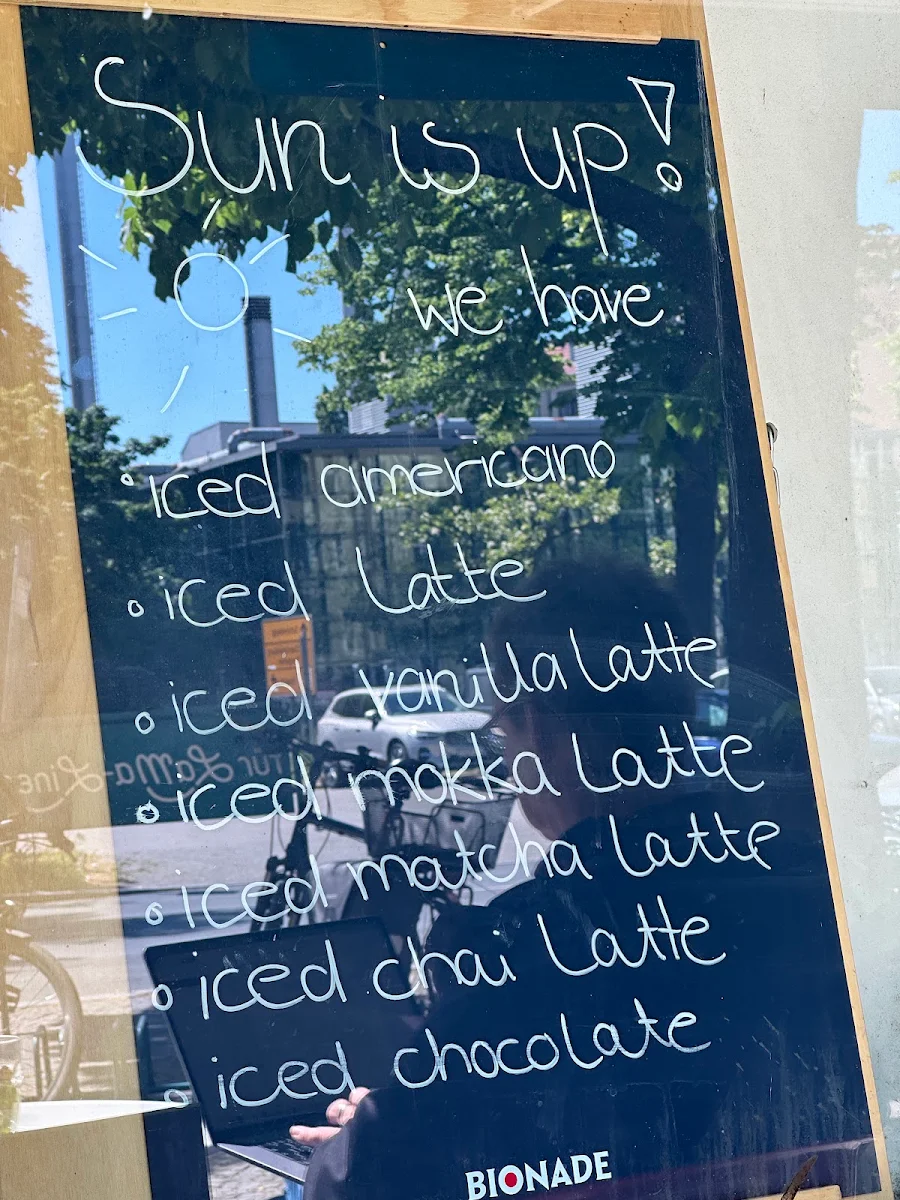 Sun is up!
we have
iced americano
iced latte
iced vanilla latte
iced mokka latte
für LaMa-Line
iced matcha latte
iced chai latte
iced chocolate
BIONADE